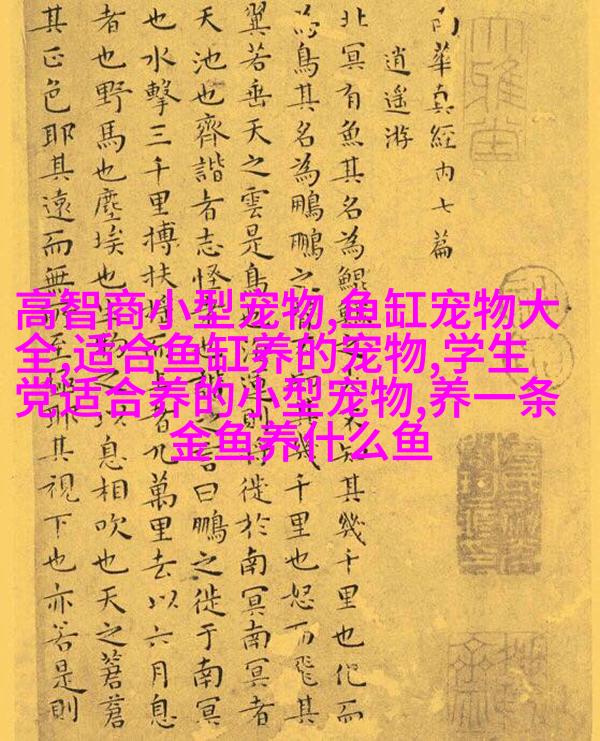 高智商小型宠物,鱼缸宠物大
全,适合鱼缸养的宠物,学生
党适合养的小型宠物,养一条
金鱼养什么鱼
南華真經内七篇
逍遥游
北冥有魚其名為鯤鯤之大不知其幾千里也化而
為鳥其名為鵬鵬之背不知其幾千里也怒而飛其
翼若垂天之雲是鳥也海運則將徙於南冥南冥者
天池也齊諧者志怪者也諧之言曰鵬之徙于南冥
也水擊三千里搏扶搖而上者九萬里去以六月息
者也野馬也塵埃也生物之以息相吹也天之蒼蒼
其正色耶其遠而無所至極耶其視下也亦若是則